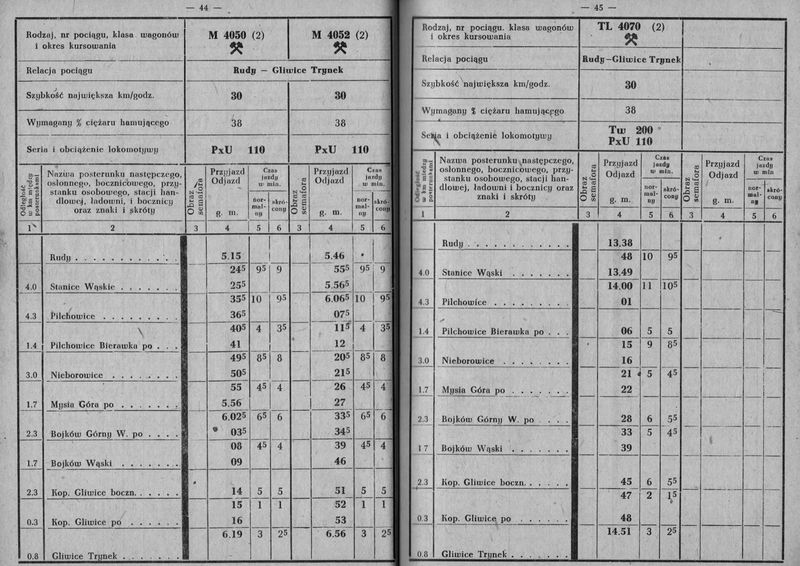 — 44 —
Rodzaj, nr pociągu, klasa wagonów i okres kursowania | M 4050 (2) ⚒ | M 4052 (2) ⚒
Relacja pociągu | Rudy — Gliwice Trynek
Szybkość największa km/godz. | 30 | 30
Wymagany % ciężaru hamującego | 38 | 38
Seria i obciążenie lokomotywy | PxU 110 | PxU 110
Odległość w km między posterunkami | Nazwa posterunku następczego, osłonnego, bocznicowego, przystanku osobowego, stacji handlowej, ładowni, i bocznicy oraz znaki i skróty | Obraz semafora | Przyjazd Odjazd g. m. | Czas jazdy w min. normalny | skrócony | Obraz semafora | Przyjazd Odjazd g. m. | Czas jazdy w min. normalny | skrócony
1 | 2 | 3 | 4 | 5 | 6 | 3 | 4 | 5 | 6
Rudy . . . . . . . . . . | 5.15 | 5.46
24⁵ | 9⁵ | 9 | 55⁵ | 9⁵ | 9
4.0 | Stanice Wąskie . . . . . . | 25⁵ | 5.56⁵
35⁵ | 10 | 9⁵ | 6.06⁵ | 10 | 9⁵
4.3 | Pilchowice . . . . . . . . | 36⁵ | 07⁵
40⁵ | 4 | 3⁵ | 11⁵ | 4 | 3⁵
1.4 | Pilchowice Bierawka po . . . | 41 | 12
49⁵ | 8⁵ | 8 | 20⁵ | 8⁵ | 8
3.0 | Nieborowice . . . . . . . | 50⁵ | 21⁵
55 | 4⁵ | 4 | 26 | 4⁵ | 4
1.7 | Mysia Góra po . . . . . . | 5.56 | 27
6.02⁵ | 6⁵ | 6 | 33⁵ | 6⁵ | 6
2.3 | Bojków Górny W. po . . . . | 03⁵ | 34⁵
08 | 4⁵ | 4 | 39 | 4⁵ | 4
1.7 | Bojków Wąski . . . . . . | 09 | 46
2.3 | Kop. Gliwice boczn. . . . . . | 14 | 5 | 5 | 51 | 5 | 5
15 | 1 | 1 | 52 | 1 | 1
0.3 | Kop. Gliwice po . . . . . . | 16 | 53
6.19 | 3 | 2⁵ | 6.56 | 3 | 2⁵
0.8 | Gliwice Trynek . . . . . . .
— 45 —
Rodzaj, nr pociągu. klasa wagonów i okres kursowania | TL 4070 (2) ⚒
Relacja pociągu | Rudy—Gliwice Trynek
Szybkość największa km/godz. | 30
Wymagany % ciężaru hamującego | 38
Seria i obciążenie lokomotywy | Tw 200 PxU 110
Odległość w km między posterunkami | Nazwa posterunku następczego, osłonnego, bocznicowego, przystanku osobowego, stacji handlowej, ładowni i bocznicy oraz znaki i skróty | Obraz semafora | Przyjazd Odjazd g. m. | Czas jazdy w min. normalny | skrócony | Obraz semafora | Przyjazd Odjazd g. m. | Czas jazdy w min normalny | skrócony
1 | 2 | 3 | 4 | 5 | 6 | 3 | 4 | 5 | 6
Rudy . . . . . . . . . . | 13.38
48 | 10 | 9⁵
4.0 | Stanice Wąski . . . . . . | 13.49
14.00 | 11 | 10⁵
4.3 | Pilchowice . . . . . . . . | 01
1.4 | Pilchowice Bierawka po . . . | 06 | 5 | 5
15 | 9 | 8⁵
3.0 | Nieborowice . . . . . . . | 16
21 | 5 | 4⁵
1.7 | Mysia Góra po . . . . . . | 22
2.3 | Bojków Górny W. po . . . . | 28 | 6 | 5⁵
33 | 5 | 4⁵
1 7 | Bojków Wąski . . . . . . | 39
2.3 | Kop. Gliwice boczn. . . . . . | 45 | 6 | 5⁵
47 | 2 | 1⁵
0.3 | Kop. Gliwice po . . . . . . | 48
14.51 | 3 | 2⁵
0.8 | Gliwice Trynek . . . . . . .